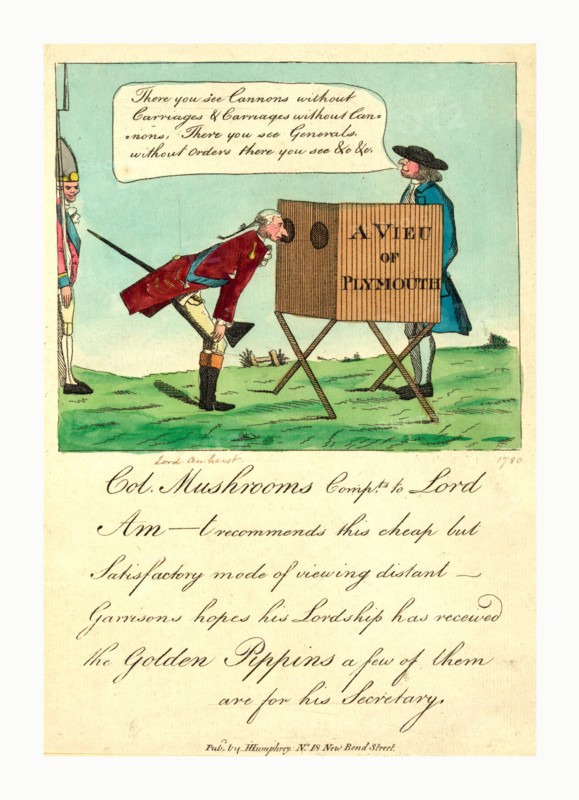 There you see Cannons without
Carriages & Carriages without Can=
=nons. There you see Generals
without Orders there you see &c &c.
A VIEU
OF
PLYMOUTH
Lord Amherst
1780
Col. Mushrooms Compts. to Lord
Am—t recommends this cheap but
Satisfactory mode of viewing distant —
Garrisons hopes his Lordship has received
the Golden Pippins a few of them
are for his Secretary.
Pub. by HHumphrey No. 18 New Bond Street.